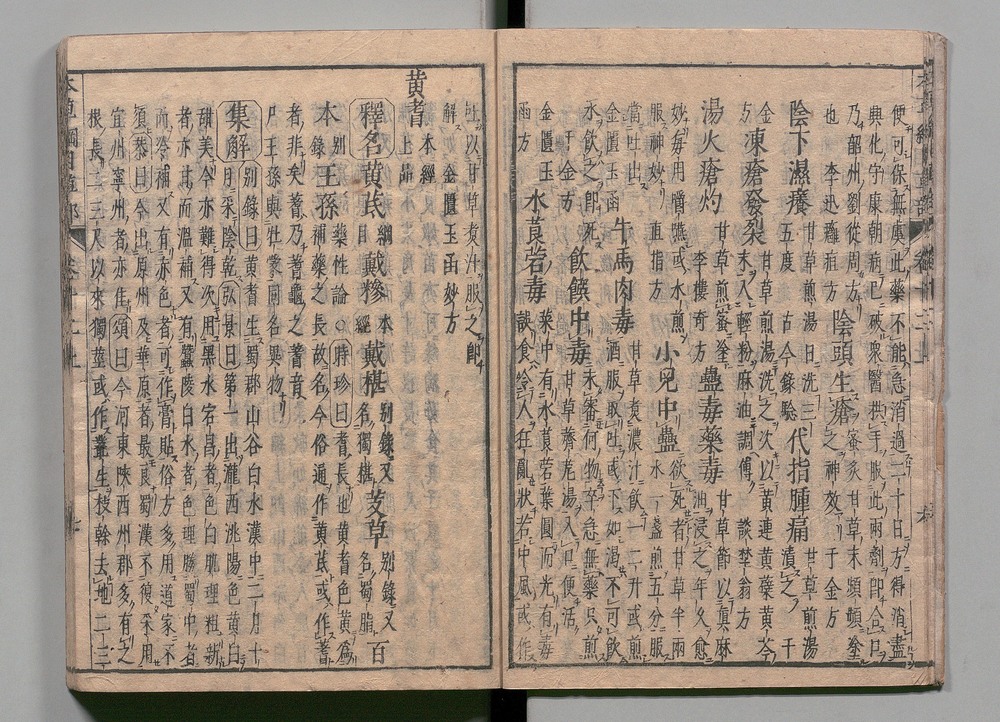 便可保無虞此藥不能急消過二十日方得消盡
典化守康朝病已破衆醫拱手服此兩劑即合口
乃韶州劉從周方也 李迅癰疽方 陰頭生瘡 蜜炙甘草末頻頻塗之神效 千金方
陰下濕癢 甘草煎湯日洗三五度 古今錄驗 代指腫痛 甘草煎湯漬之 千金
凍瘡發裂 甘草煎湯洗之次以黃連黃蘗黃芩末入輕粉麻油調傅 談埜翁方
湯火瘡灼 甘草煎蜜塗 李樓奇方 蠱毒藥毒 甘草節以眞麻油浸之年久愈
妙每用嚼嚥或水煎服神妙 直指方 小兒中蠱 欲死者甘草半兩水一盞煎五分服
當吐出 金匱玉函 牛馬肉毒 甘草煮濃汁飲一二升或煎酒服取吐或下如渴不可飲
水飲之即死 千金方 飲饌中毒 未審何物卒急無藥只煎甘草薺苨湯入口便活
金匱玉函方 水莨菪毒 菜中有水莨菪葉圓而光有毒誤食令人狂亂狀若中風或作
吐以甘草煮汁服之即解 金匱玉函妙方
黃耆 本經上品
釋名 黃芪 綱目 戴糝 本經 戴椹 別錄又名獨椹 芰草 別錄又名蜀脂 百
本 別錄 王孫 藥性論○時珍曰耆長也黃耆色黃爲補藥之長故名今俗通作黃芪或作蓍
者非矣蓍乃蓍龜之蓍音尸王孫與牡蒙同名異物
集解 別錄曰黃耆生蜀郡山谷白水漢中二月十月采陰乾 弘景曰第一出隴西洮陽色黃白
甜美今亦難得次用黑水宕昌者色白肌理粗新者亦甘而溫補又有蠶陵白水者色理勝蜀中者
而冷補又有赤色者可作膏貼俗方多用道家不須 恭曰今出原州及華原者最良蜀漢不復采用
宜州寧州者亦佳 頌曰今河東陝西州郡多有之根長二三尺以來獨莖或作叢生枝幹去地二三